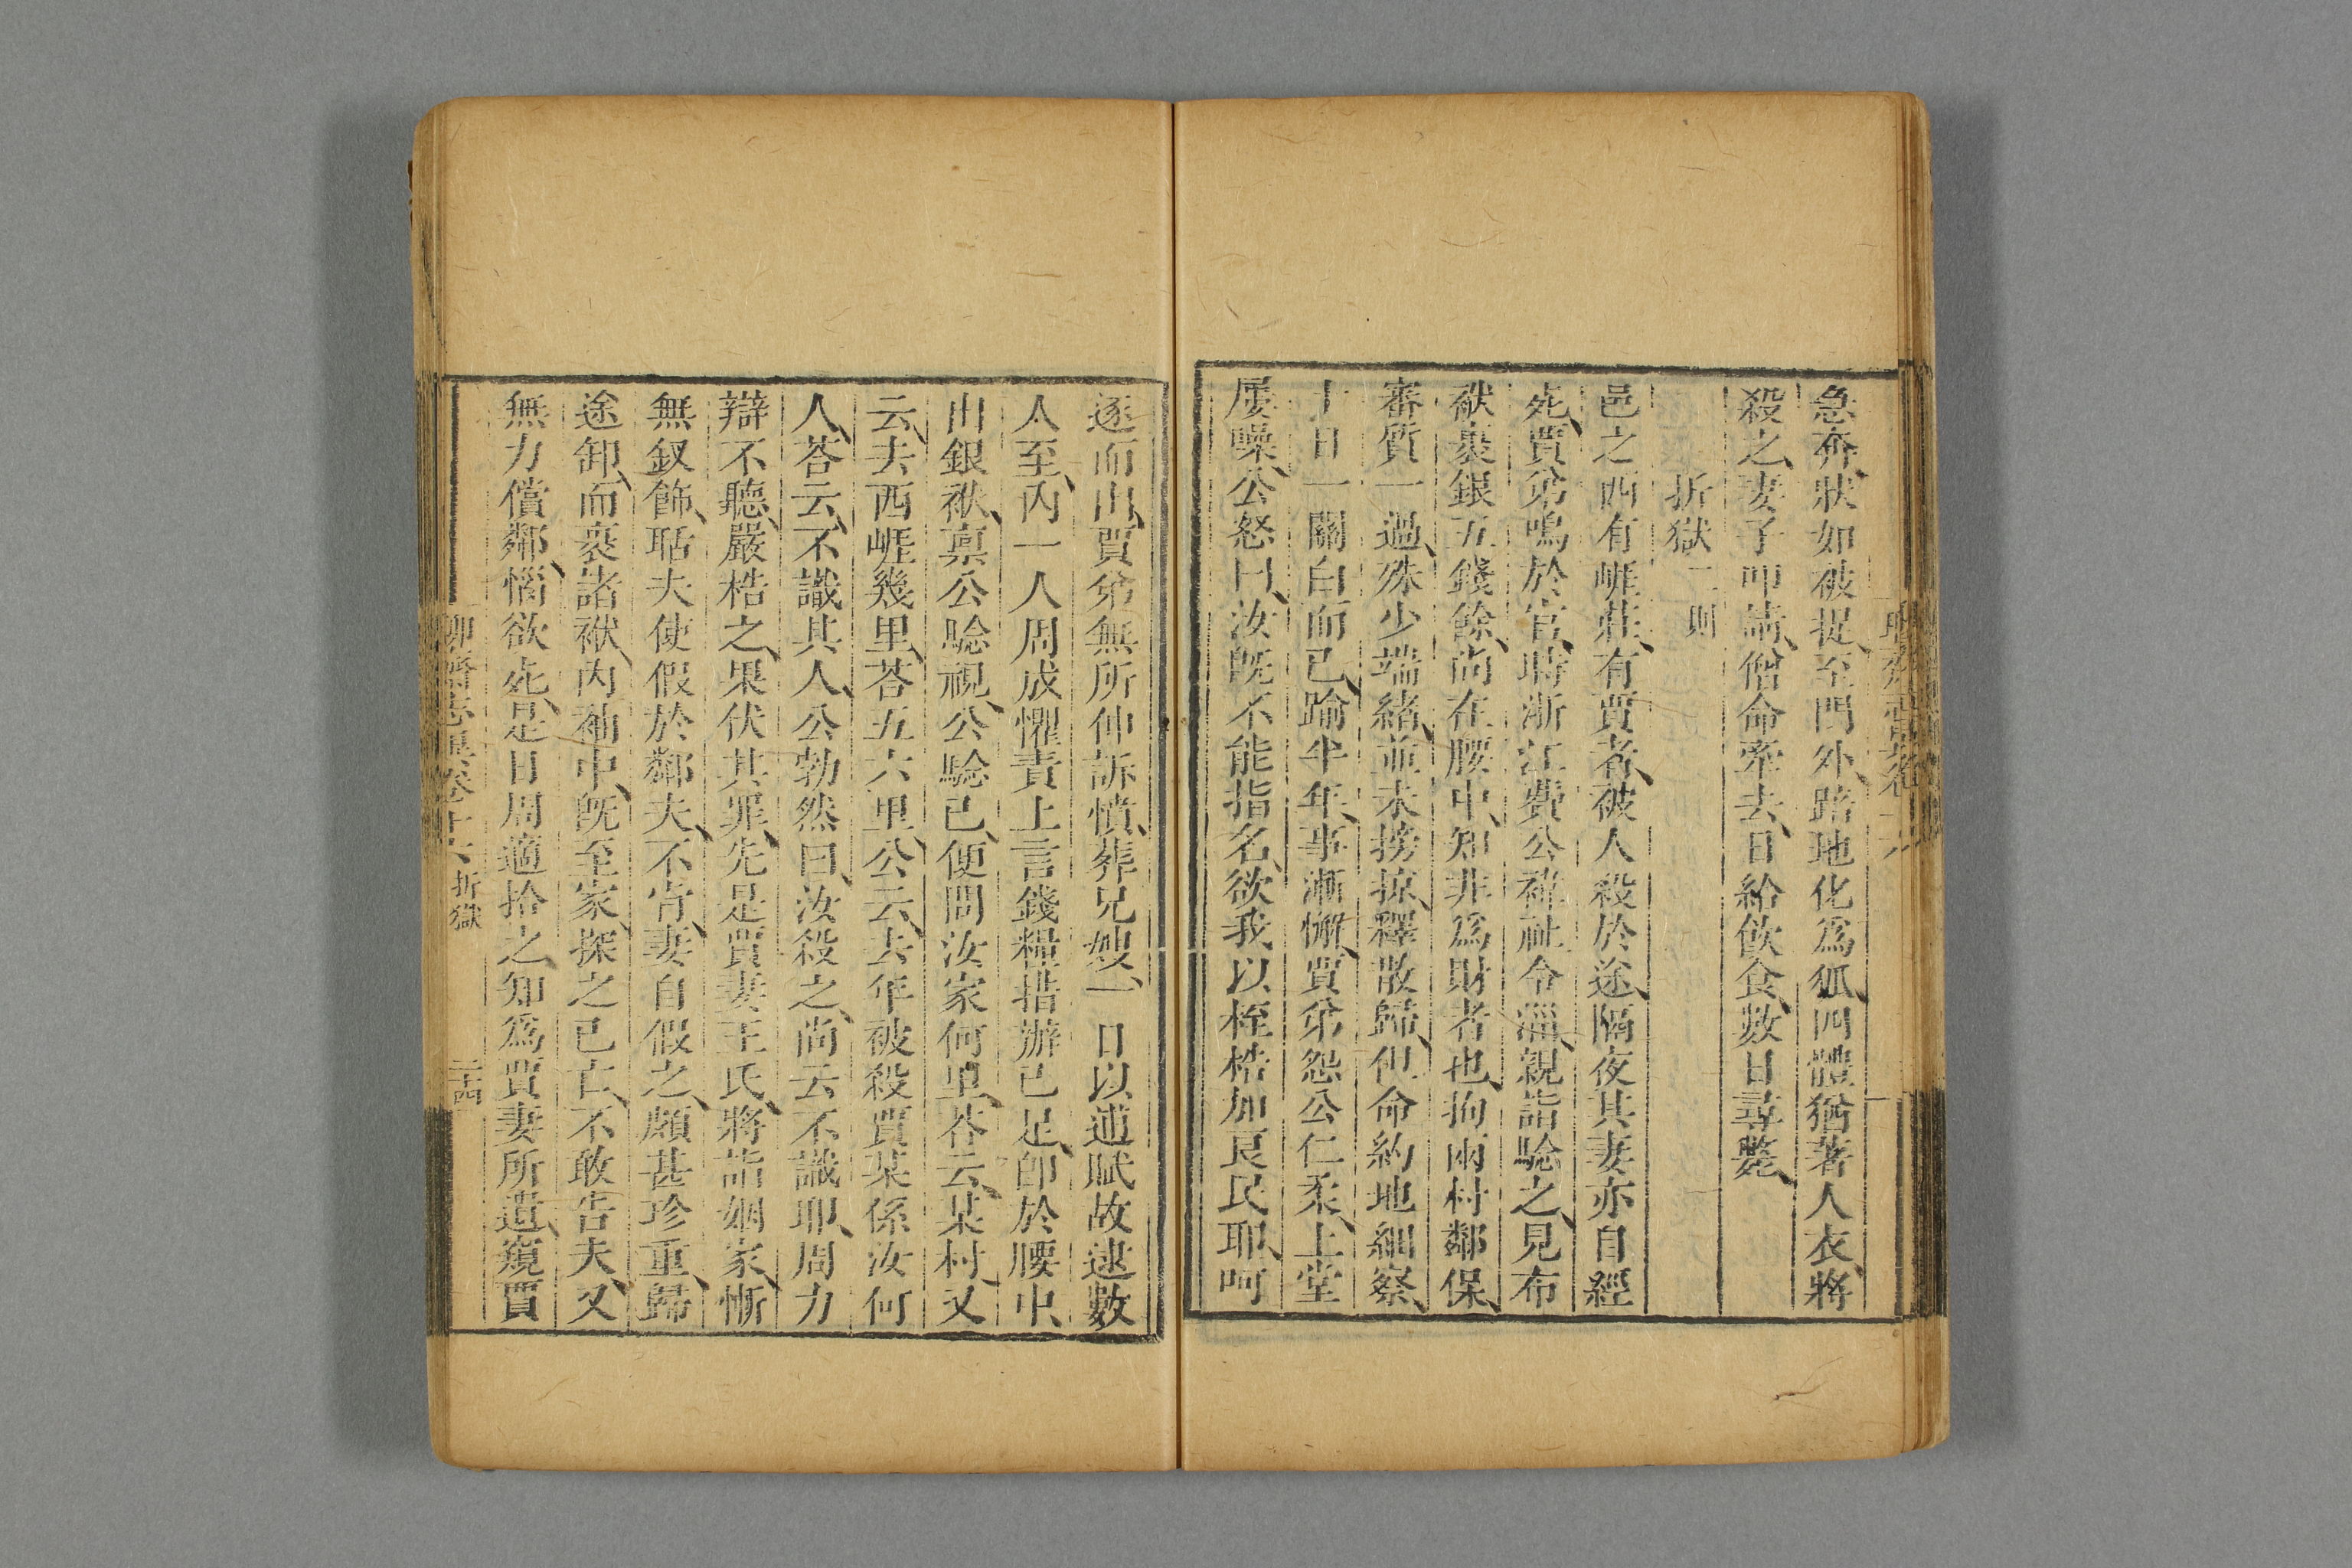 急奔狀如被捉、至門外、踣地化爲狐、四體猶著人衣、將
殺之、妻子叩請、僧命牽去、日給飲食、數日尋斃、
折獄二則
邑之西有崕莊、有賈者、被人殺於途、隔夜其妻亦自經
死、賈弟鳴於官、時浙江費公禕祉令淄、親詣騐之、見布
袱裹銀五錢餘、尚在腰中、知非爲財者也、拘兩村鄰保
審質一過、殊少端緒、並未搒掠、釋散歸、但命約地細察、
十日一關白而已、踰半年、事漸懈、賈弟怨公仁柔、上堂
屢噪、公怒曰、汝既不能指名、欲我以桎梏加良民耶、呵
逐而出、賈弟無所伸訴、憤葬兄嫂、一日以逋賦故逮數
人至、內一人周成懼責上言錢糧措辦已足、卽於腰中、
出銀袱、稟公騐視、公騐已、便問汝家何里、荅云、某村、又
云、去西崕幾里、荅五六里、公云、去年被殺賈某係汝何
人、荅云、不識其人、公勃然曰、汝殺之、尚云不識耶、周力
辯不聽、嚴梏之、果伏其罪、先是賈妻王氏、將詣姻家、慚
無釵飾、聒夫使假於鄰、夫不肯、妻自假之、頗甚珍重、歸
途卸、而裹諸袱、內袖中、既至家、探之已亡、不敢告夫、又
無力償鄰、惱欲死、是日周適拾之、知爲賈妻所遺、窺賈
聊齋志異卷十六 折獄 二十四